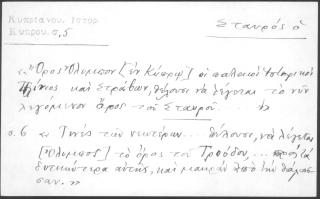 Κυπριανού. Ιστορ.
Κύπρου. σ. 5
Σταυρός ὁ
«Ὄρος Ὄλυμπον [ἐν Κύπρῳ] οἱ παλαιοὶ Ἱστορικοὶ
Πλίνιος καὶ Στράβων, θέλουσι νὰ λέγεται τὸ νῦν
λεγόμενον ὄρος τοῦ Σταυροῦ ... »
σ. 6 « Τινὲς τῶν νεωτέρων ... θέλουσι, νὰ λέγεται
[Ὄλυμπος] τὸ ὄρος τοῦ Τροόδου, ...
δυτικώτερα αὐτῆς, καὶ μακρὰν ἀπὸ τὴν θάλασ-
σαν. »